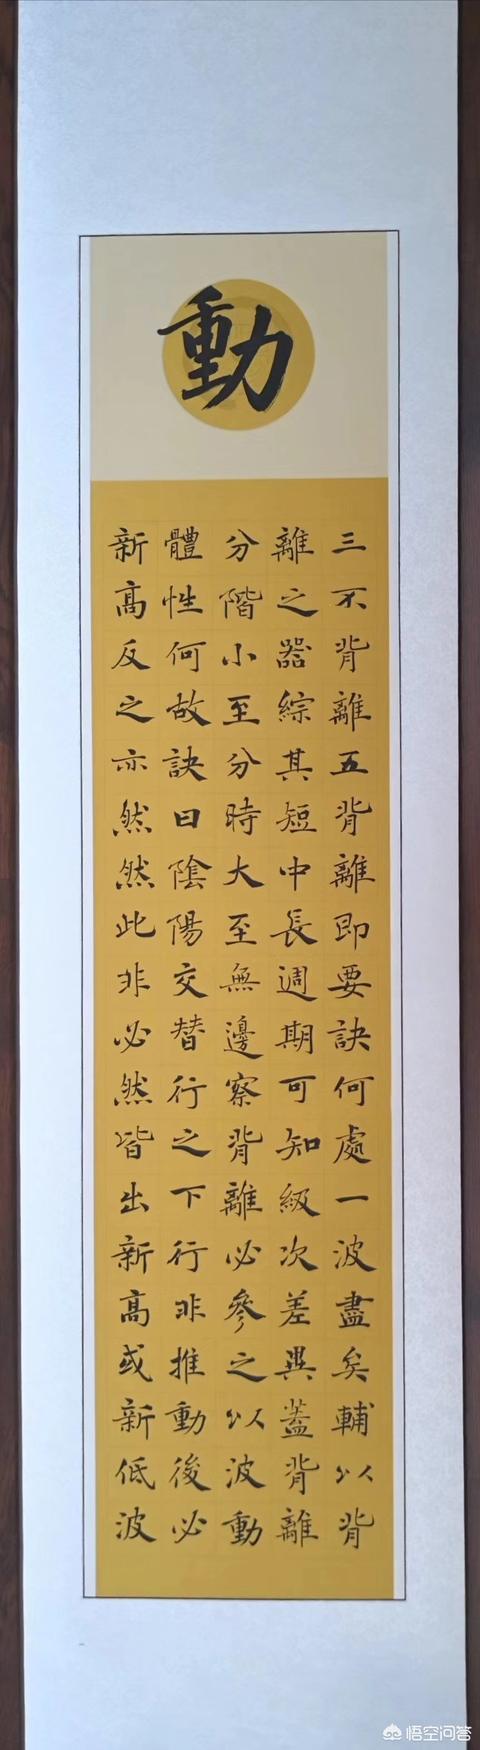 動
三不背離五背離即要訣何處一波盡矣輔以背
離之器綜其短中長週期可知級次差異蓋背離
分階小至分時大至無邊察背離必參之以波動
體性何故訣曰陰陽交替行之下行非推動後必
新高反之亦然然此非必然皆出新高或新低波
悟空问答